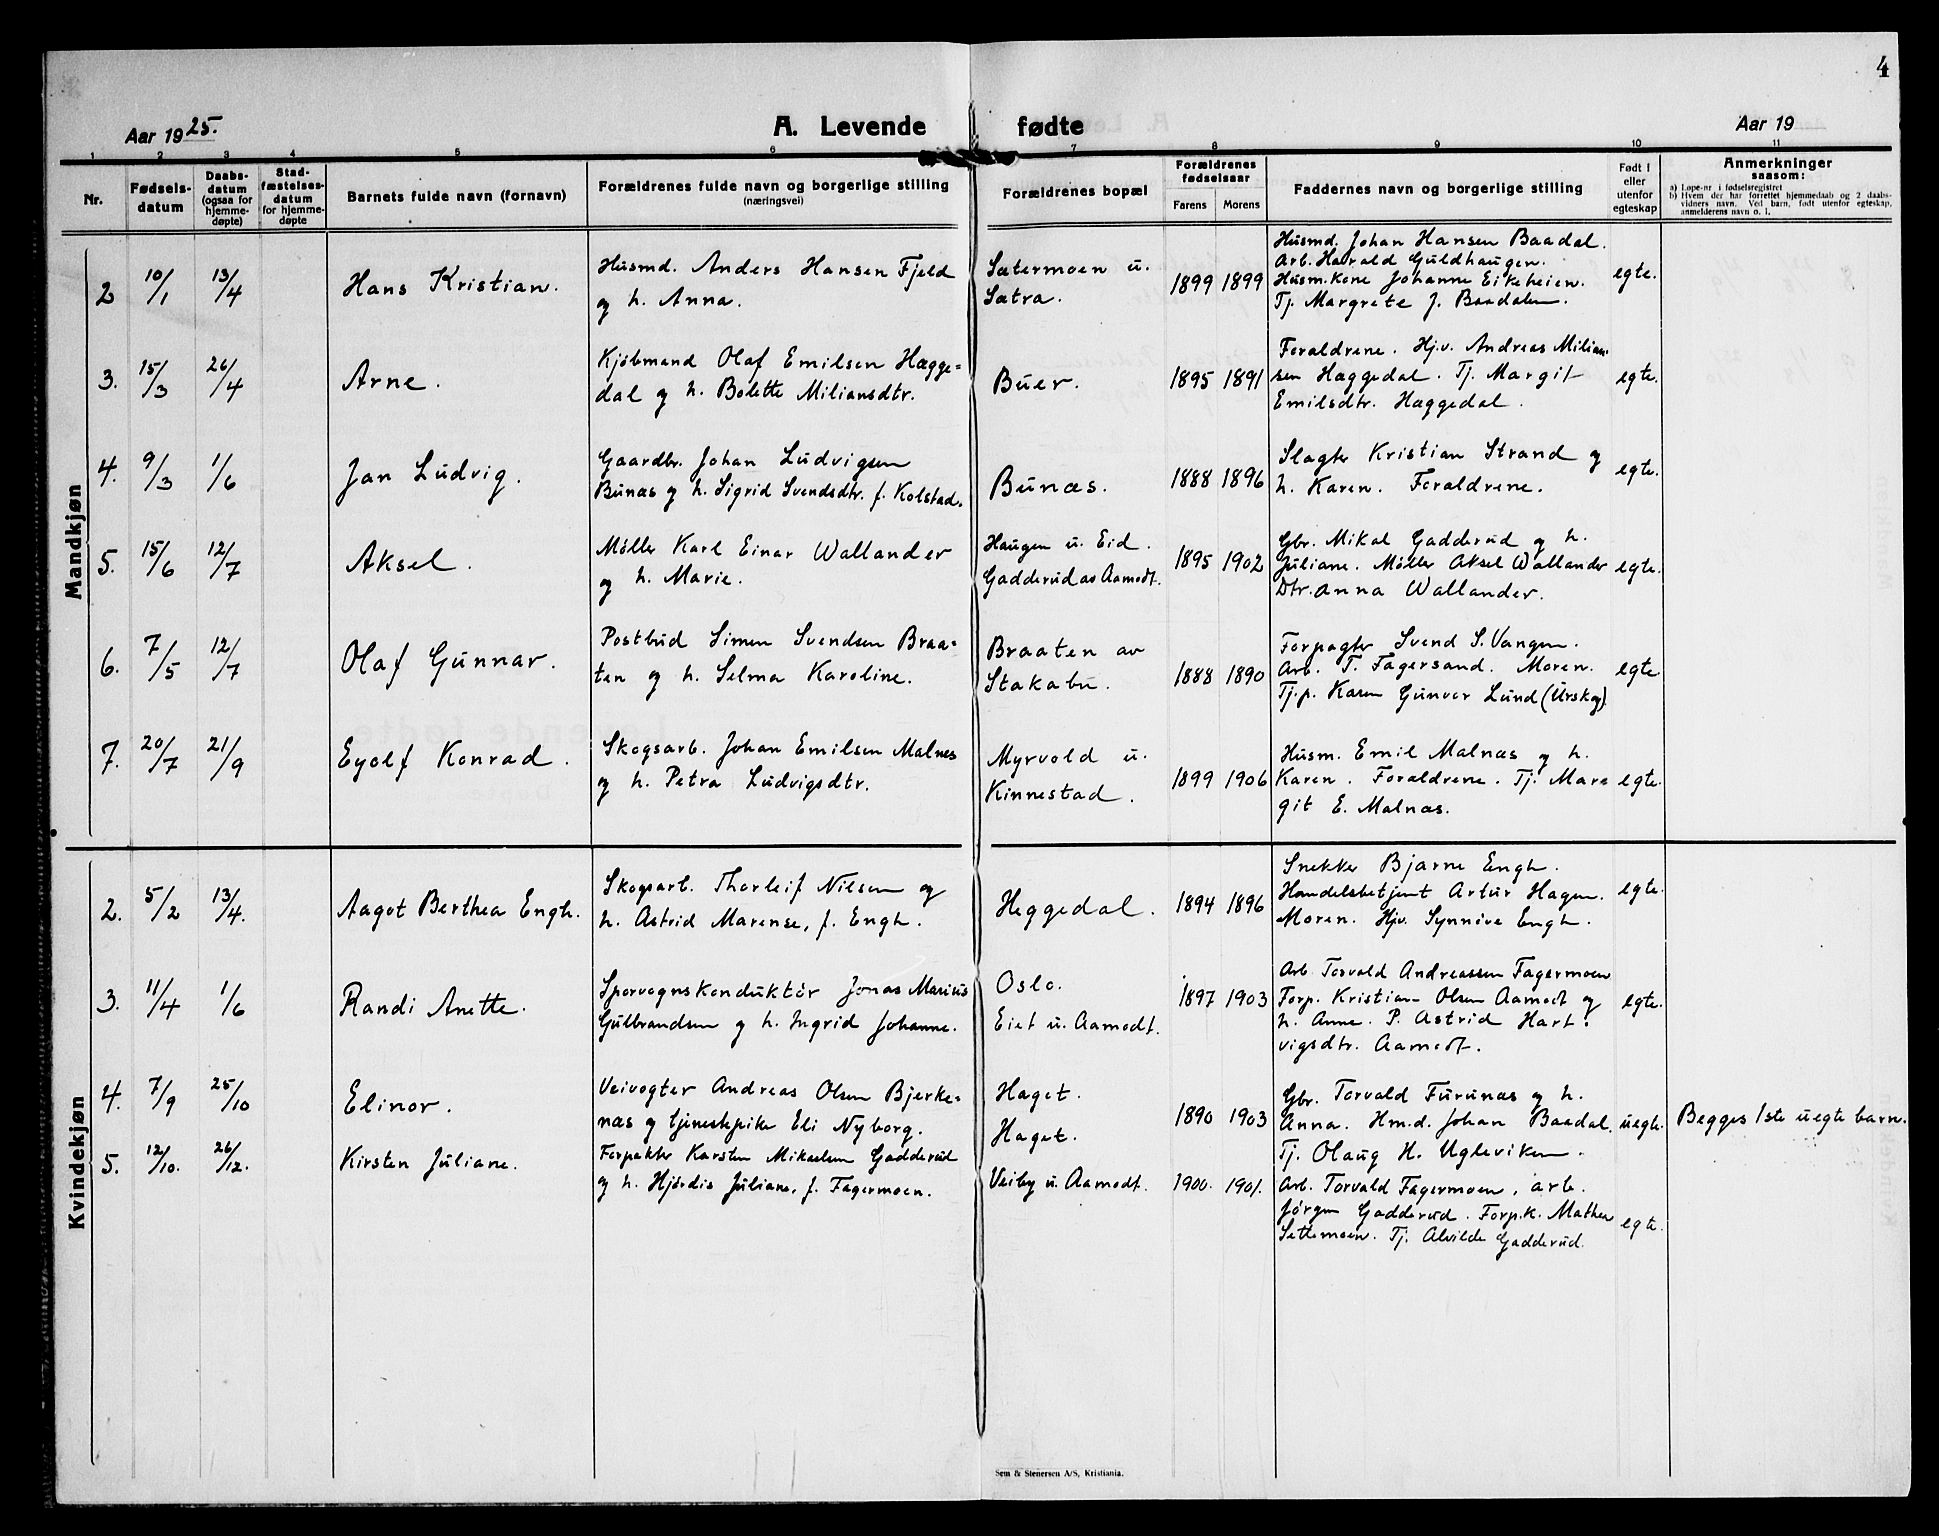 4
Aar 1925.
A. Levende fødte
Aar 19
1 2 3 4 5 6 7 8 9 10 11
Nr.
Fødsels-
datum
Daabs-
datum
(ogsaa for
hjemme-
døpte)
Stad-
fæstelses-
datum
for hjemme-
døpte
Barnets fulde navn (fornavn)
Forældrenes fulde navn og borgerlige stilling
(næringsvei)
Forældrenes bopæl
Forældrenes
fødselsaar
Farens Morens
Faddernes navn og borgerlige stilling
Født i
eller
utenfor
egteskap
Anmerkninger
saasom:
a) Løpe-nr i fødselsregistret
b) Hvem der har forrettet hjemmedaab og 2 daabs-
vidners navn. Ved barn, født utenfor egteskap,
anmelderens navn o. l.
Mandkjøn
2 10/1 13/4 Hans Kristian.
Husmd. Anders Hansen Fjeld
og h. Anna.
Sætermoen u.
Sætra.
1899 1899
Husmd. Johan Hansen Baadal.
Arb. Harald Guldhaugen.
Husm.kone Johanne Eikeheien.
Tj. Margrete J. Baadalen.
egte.
3. 15/3 26/4 Arne.
Kjöbmand Olaf Emilsen Hægge=
dal og h. Bolette Miliansdtr.
Buer.
1895 1891
Forældrene. Hjv. Andreas Milian
sen Hæggedal. Tj. Margit
Emilsdtr. Hæggedal.
egte.
4. 9/3 1/6 Jan Ludvig.
Gaardbr. Johan Ludvigsen
Bunæs og h. Sigrid Svendsdtr. f. Kolstad.
Bunæs.
1888 1896
Slagter Kristian Strand og
h. Karen. Forældrene.
egte.
5. 15/6 12/7 Aksel.
Möller Karl Einar Wallander
og h. Marie.
Haugen u. Eid.
Gadderud as Aamodt.
1895 1902
Gbr. Mikal Gadderud og h.
Juliane. Möller Aksel Wallander
Dtr. Anna Wallander.
egte.
6. 7/5 12/7 Olaf Gunnar.
Postbud Simen Svendsen Braa=
ten og h. Selma Karoline.
Braaten av
Stakabu.
1888 1890
Forpagter Svend S. Vangen.
Arb. T. Fagersand. Moren.
Tj.p. Karen Gunvor Lund (Urskog)
egte.
7. 20/7 21/9 Eyolf Konrad.
Skogsarb. Johan Emilsen Malnes
og h. Petra Ludvigsdtr.
Myrvold u.
Kinnestad.
1899 1906
Husm. Emil Malnæs og h.
Karen. Forældrene. Tj. Mar=
git E. Malnæs.
egte.
Kvindekjøn
2. 5/2 13/4. Aagot Berthea Engh.
Skogsarb. Thorleif Nilsen og
h. Astrid Marense, f. Engh.
Heggedal.
1894 1896
Snekker Bjarne Engh.
Handelsbetjent Artur Hagen.
Moren. Hjv. Synnive Engh.
egte.
3. 11/4 1/6 Randi Anette.
Sporvognskonduktör Jonas Marius
Gulbrandsen og h. Ingrid Johanne.
Oslo.
Eiet u. Aamodt.
1897 1903
Arb. Torvald Andreassen Fagermoen
Forp. Kristian Olsen Aamodt og
h. Anne. P. Astrid Hart-
vigsdtr. Aamodt.
egte.
4. 7/9 25/10 Elinor.
Veivogter Andreas Olsen Bjerke=
næs og tjenestepike Eli Nyborg.
Haget.
Haget.
1890 1903
Gbr. Torvald Furunæs og h.
Anna. Hm.d. Johan Baadal.
Tj. Olaug H. Ugleviken.
uegte.
Begges 1ste uegte barn.
5. 12/10. 26/12. Kirsten Juliane.
Forpakter Karsten Mikaelsen Gadderud
og h. Hjördis Juliane, f. Fagermoen.
Veiby u. Aamodt.
1900. 1901.
Arb. Torvald Fagermoen, arb.
Jørgen Gadderud. Forp.k. Mathea
Settemoen. Tj. Alvilde Gadderud.
egte.
Sem & Stenersen A/S, Kristiania.